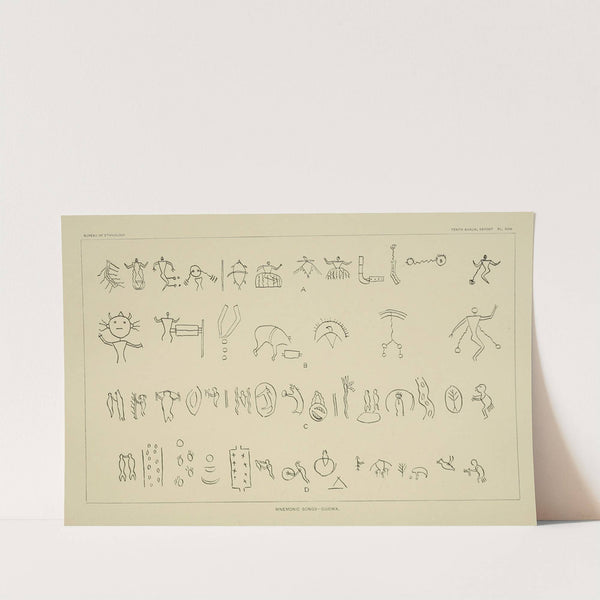 BUREAU OF ETHNOLOGY
TENTH ANNUAL REPORT PL.
A
B
C
D
MNEMONIC SONGS—OJIBWA.